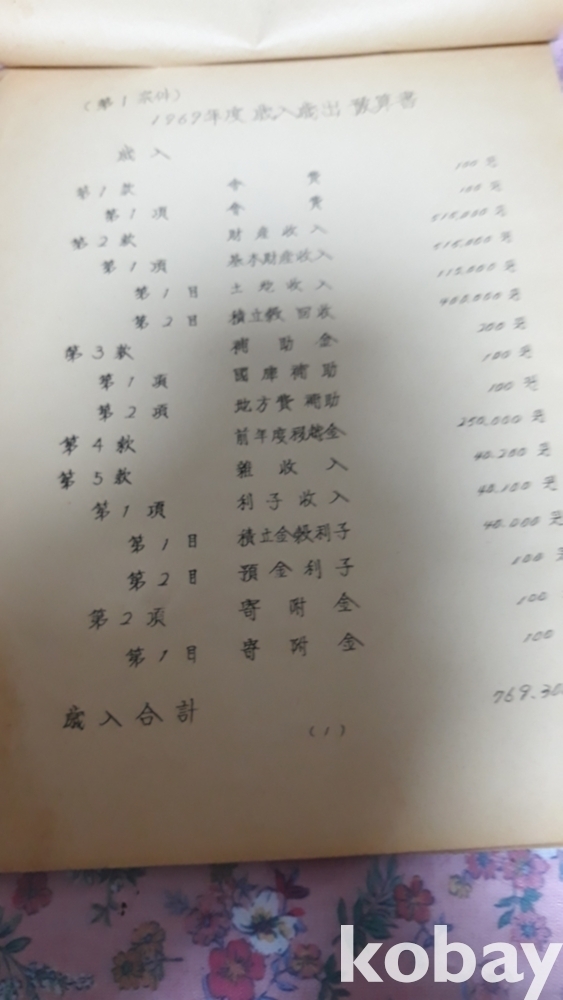 (第1案件)
1969年度 歲入歲出 豫算書
歲入
第1款 会費 100 원
第1項 会費 100 원
第2款 財産收入 515,000 원
第1項 基本財産收入 515,000 원
第1目 土地收入 115,000 원
第2目 積立穀回收 400,000 원
第3款 補助金 200 원
第1項 國庫補助 100 원
第2項 地方費補助 100 원
第4款 前年度移越金 250,000 원
第5款 雜收入 40,200 원
第1項 利子收入 40,100 원
第1目 積立金穀利子 40,000 원
第2目 預金利子 100
第2項 寄附金 100
第1目 寄附金 100
歲入合計
(1)
kobay